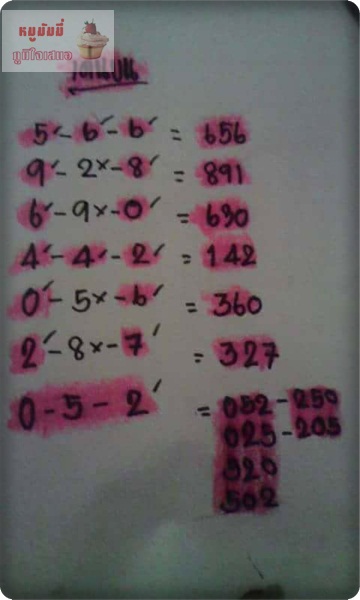 หมูมัมมี่
มูมีใจเสมอ
5✓-6✓-6✓ = 656
9✓-2×-8✓ = 891
6✓-9×-0✓ = 630
4✓-4✓-2✓ = 142
0✓-5×-6✓ = 360
2✓-8×-7✓ = 327
0-5-2✓ = 052-250
025-205
520
502